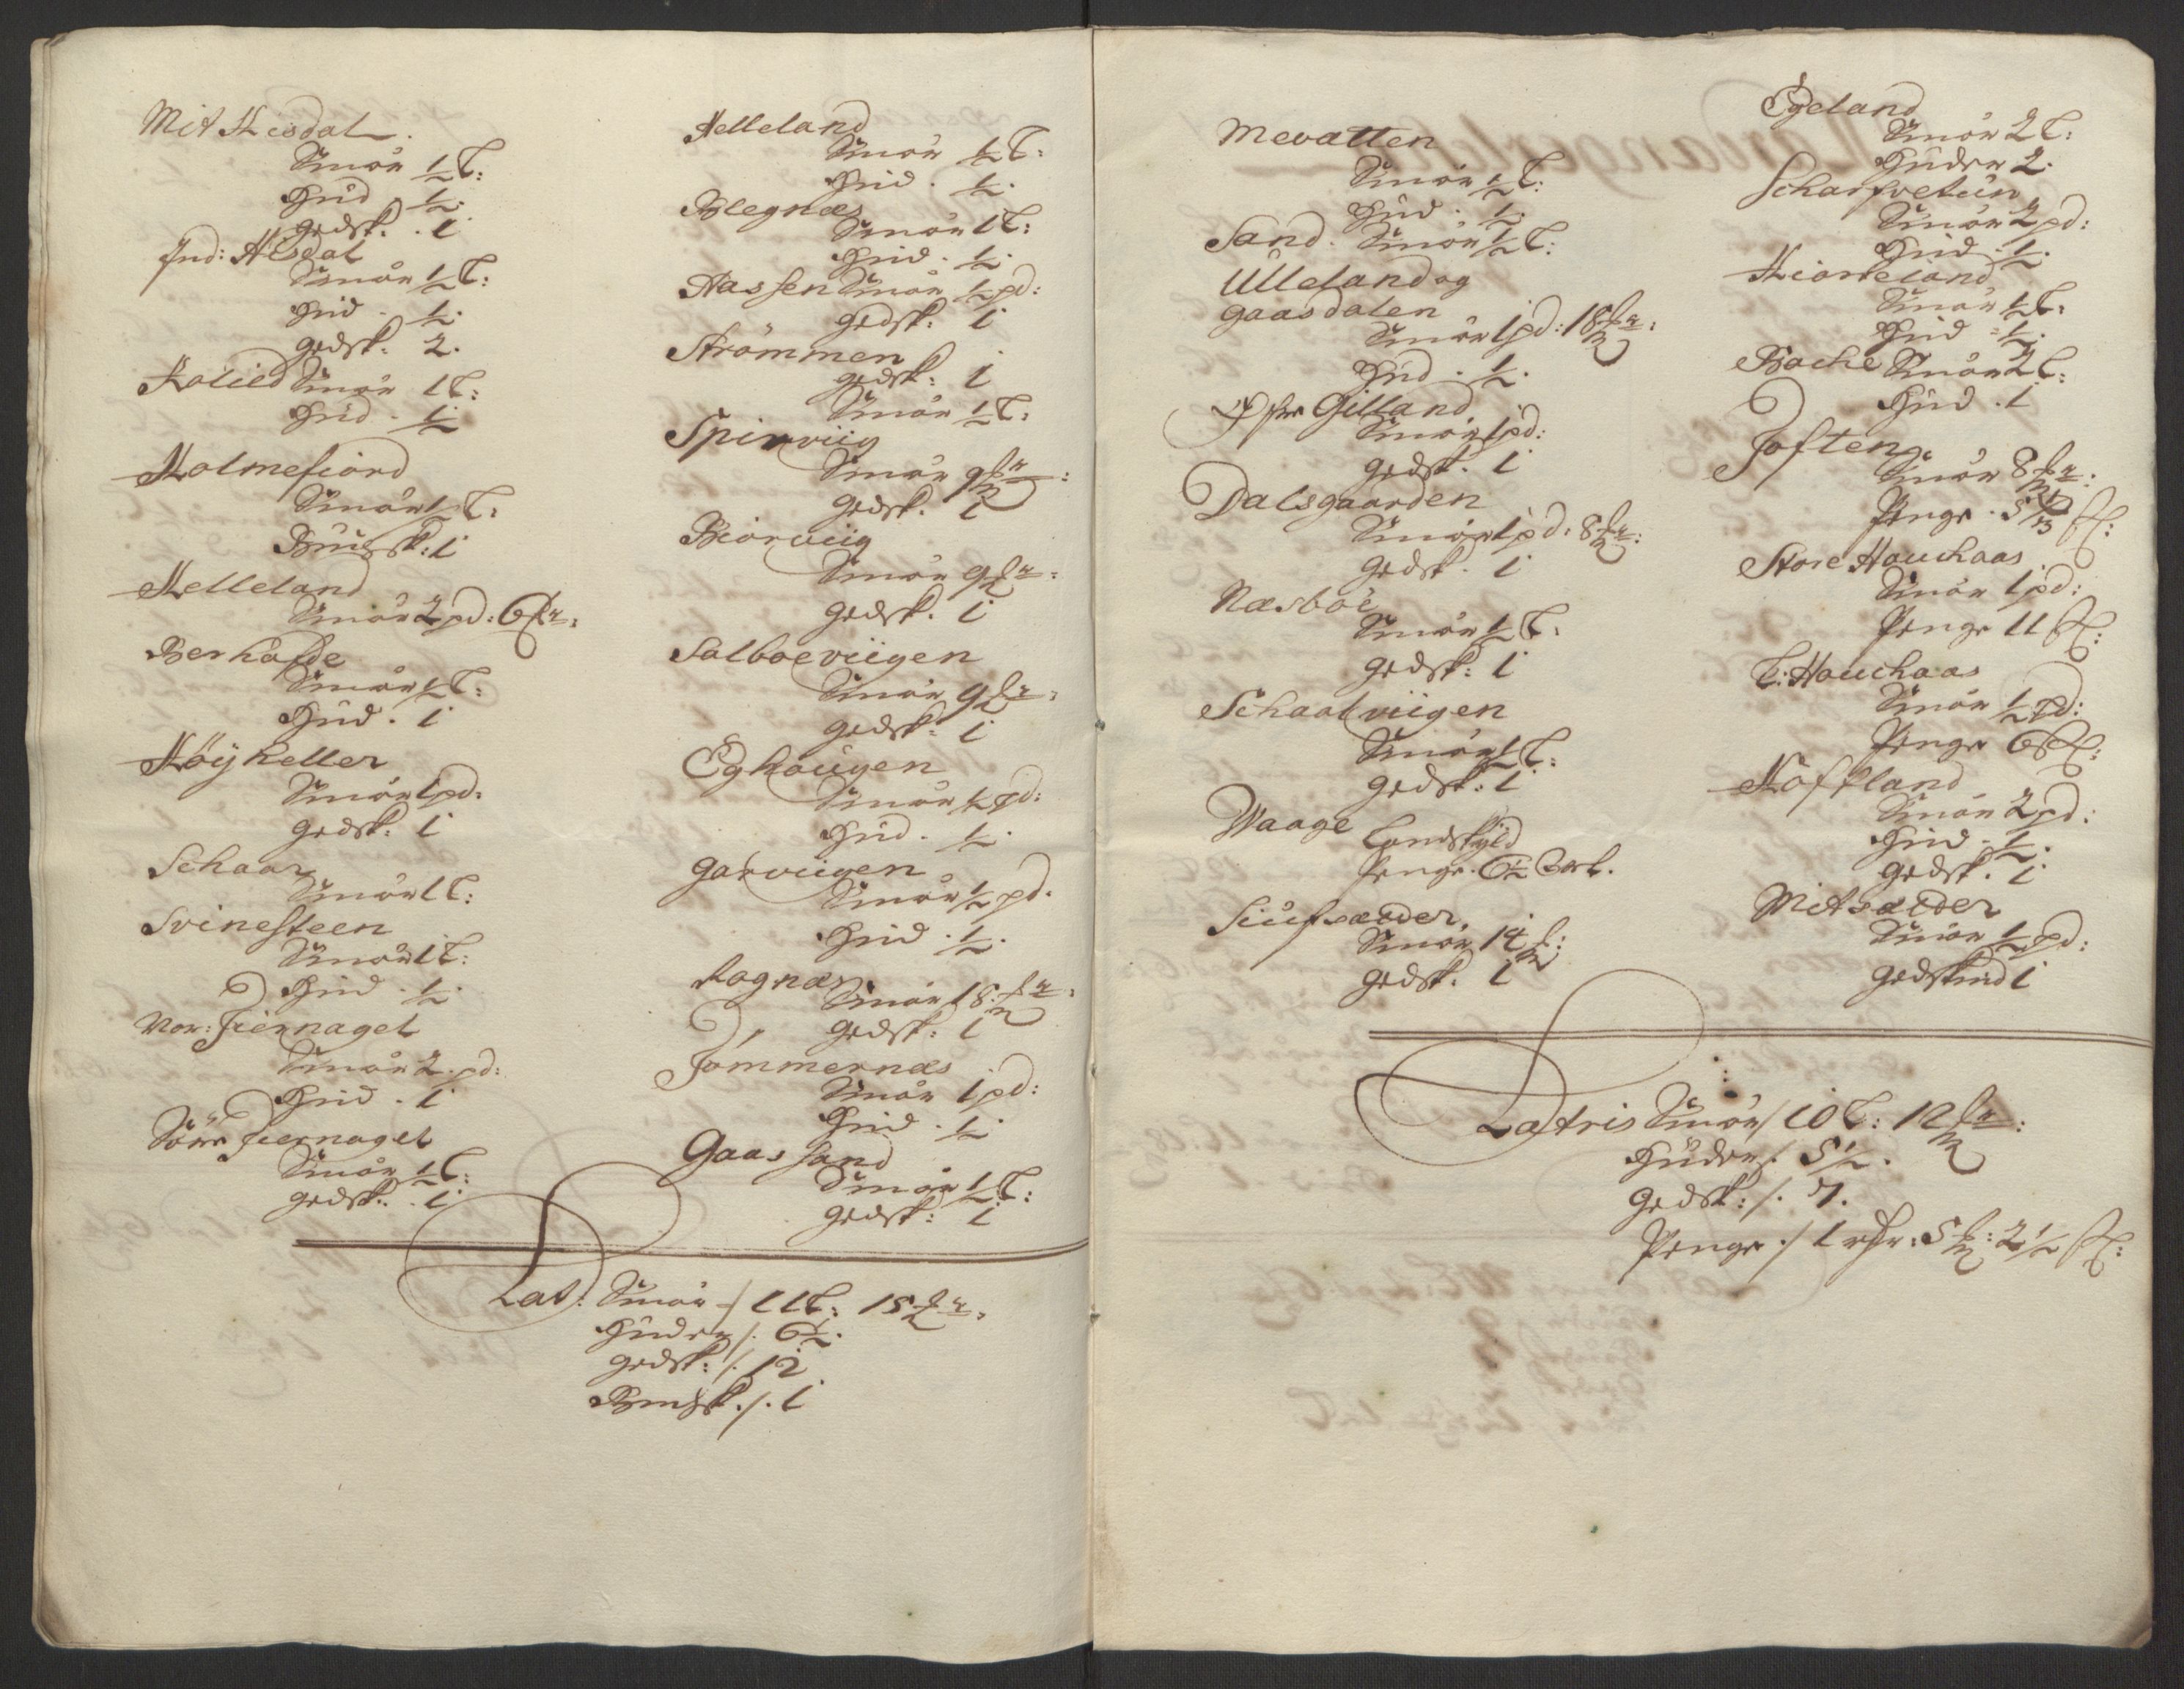 Mit Hisdal.
Smör ½ L:
Hud ½.
gedsk: . 1
Ind: Hisdal
Smör ½ L:
Hud . ½.
gedsk: 2.
Kolied Smör 1 L:
Hud . ½
Holmefiord
Smör ½ L:
Buch sk: 1
Helleland
Smör 2 pd: 6 mr:
Berhafde
Smör ½ L:
Hud . 1
Höyheller
Smör 1 pd:
gedsk: 1
Schaar
Smör 1 L:
Svinesteen
Smör 1 L:
Hud . ½.
Nor: Jiernagel
Smör 2 . pd:
Hud . 1
Sönr Jiernagel
Smör ½ L:
gedsk: . 1
Helleland
Smör ½ L:
Hud . ½.
Blegnæs
Smör 1 L:
Hud . ½.
Aassen Smör ½ pd:
gedsk: 1
Strömmen
gedsk: 1
Smör ½ L:
Spirviig
Smör 9 mr:
gedsk. 1
Biorviig
Smör 9 mr:
gedsk. 1
Salboeviigen
Smör 9 mr:
gedsk: 1
Eghougen
Smör ½ pd:
Hud . ½.
garviigen
Smör ½ pd.
Hud . ½.
Rognæs
Smör 18 mr:
gedsk: 1
Tömmernæs
Smör 1 pd:
Hud . ½.
Gaassand
Smör ½ L:
gedsk: 1
Lat: Smör ./ 11 L: 15 mr:
Huder ./. 6½.
gedsk: ./. 12
Bucksk ./. 1
Mevatten
Smör ½ L:
Hud . ½.
Sand . Smör ½ L:
Ulleland og
gaasdalen
Smör 1 pd: 18 mr:
Hud . ½.
Ofre Gilland
Smör 1 pd:
gedsk. 1
Dalsgaarden
Smör 1 pd: 8 mr:
gedsk. 1
Næsböe
Smör ½ L:
gedsk: 1
Schaalviigen
Smör ½ L:
gedsk: 1
Waage Landskyld
Penge . 6½ Ort.
Siufsæder
Smör 14 m:
gedsk. 1
Egeland
Smör 2 L:
Huder 2.
Scharfvetun
Smör 2 pd:
Hud . ½.
Kioreland
Smör ½ L:
Hud . ½.
Bache Smör 2 L:
Hud . 1
Toften
Smör 8 mr:
Penge . 5 ß:
Store Houchaas
Smör 1 pd:
Penge 11 ß:
L: Houchaas
Smör ½ pd:
Penge 6 ß:
Höfftland
Smör 2 pd:
Hud . ½.
gedsk. 1
Mitsæder
Smör ½ pd:
gedskind 1
Latris Smör / 10 L: 12 mr:
Huder /. 5½.
gedsk: /. 7.
Penge ./ 1 rdr: 5 m: 2½ ß: